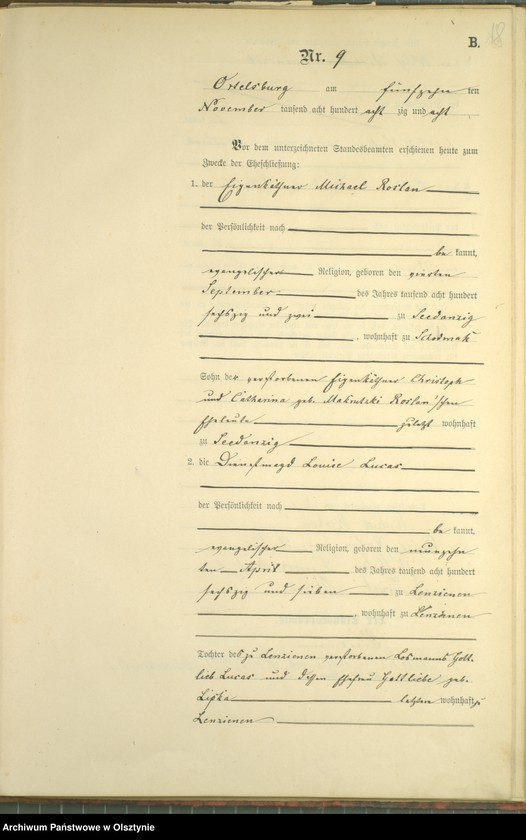 18
B.
Nr. 9
Ortelsburg am fünfzehn ten
November tausend acht hundert acht zig und acht
Vor dem unterzeichneten Standesbeamten erschienen heute zum
Zwecke der Eheschließung:
1. der Eigenkäthner Michael Roslan
der Persönlichkeit nach
be kannt,
evangelischer Religion, geboren den
September des Jahres tausend acht hundert
sechszig und zwei zu Seedanzig
, wohnhaft zu Schodmak
Sohn des verstorbenen Eigenkäthner Christoph
und Catharina geb. Makrutzki Roslan'schen
Eheleute zuletzt wohnhaft
zu Seedanzig
2. die Dienstmagd Louise Lucas
der Persönlichkeit nach
be kannt,
evangelischer Religion, geboren den neunzehn
ten April des Jahres tausend acht hundert
sechszig und sieben zu Lenzienen
, wohnhaft zu Lenzienen
Tochter des zu Lenzienen verstorbenen Losmanns Gott
lieb Lucas und dessen Ehefrau Gottliebe geb.
Lipka letztere wohnhaft zu
Lenzienen
Archiwum Państwowe w Olsztynie